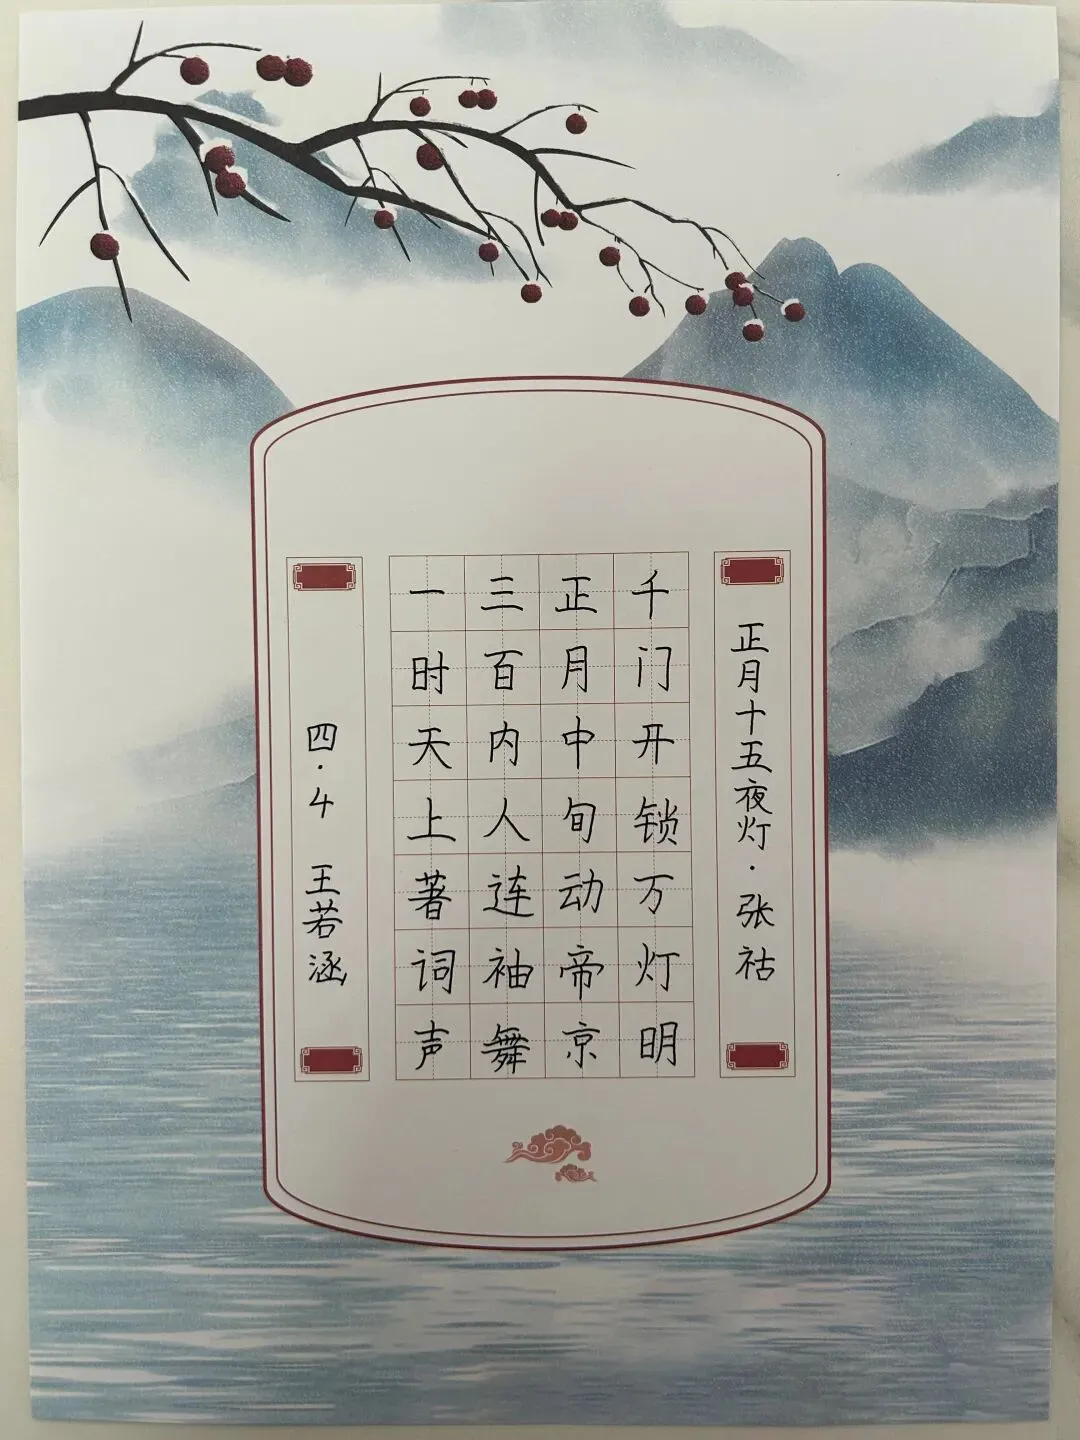 正月十五夜灯·张祜
千门开锁万灯明
正月中旬动帝京
三百内人连袖舞
一时天上著词声
四·4 王若涵